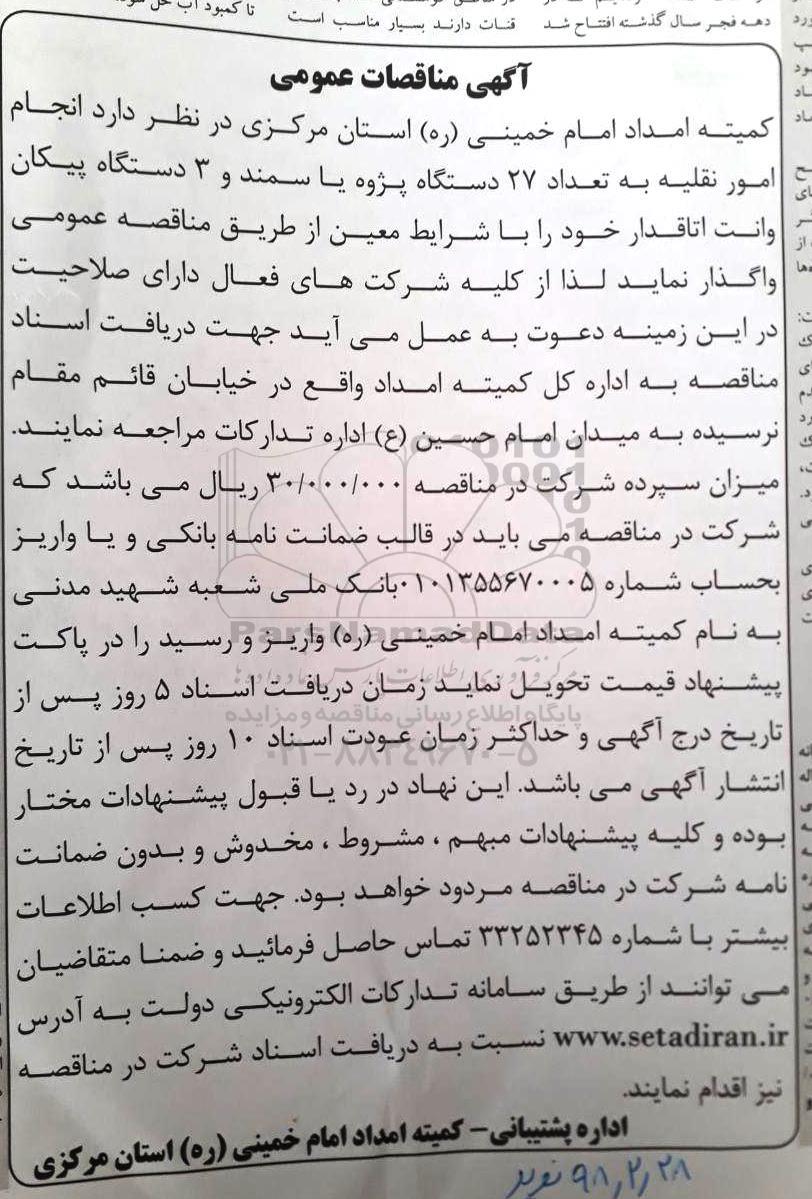 تا کمبود آب حل شود
قنات دارند بسیار مناسب است
دهه فجر سال گذشته افتتاح شد
آگهی مناقصات عمومی
کمیته امداد امام خمینی (ره) استان مرکزی در نظر دارد انجام
امور نقلیه به تعداد ۲۷ دستگاه پژوه یا سمند و ۳ دستگاه پیکان
وانت اتاقدار خود را با شرایط معین از طریق مناقصه عمومی
واگذار نماید لذا از کلیه شرکت های فعال دارای صلاحیت
در این زمینه دعوت به عمل می آید جهت دریافت اسناد
مناقصه به اداره کل کمیته امداد واقع در خیابان قائم مقام
نرسیده به میدان امام حسین (ع) اداره تدارکات مراجعه نمایند.
میزان سپرده شرکت در مناقصه ۳۰/۰۰۰/۰۰۰ ریال می باشد که
شرکت در مناقصه می باید در قالب ضمانت نامه بانکی و یا واریز
بحساب شماره ۰۱۰۱۳۵۵۶۷۰۰۰۵بانک ملی شعبه شهید مدنی
به نام کمیته امداد امام خمینی (ره) واریز و رسید را در پاکت
پیشنهاد قیمت تحویل نماید زمان دریافت اسناد ۵ روز پس از
تاریخ درج آگهی و حداکثر زمان عودت اسناد ۱۰ روز پس از تاریخ
انتشار آگهی می باشد. این نهاد در رد یا قبول پیشنهادات مختار
بوده و کلیه پیشنهادات مبهم ، مشروط ، مخدوش و بدون ضمانت
نامه شرکت در مناقصه مردود خواهد بود. جهت کسب اطلاعات
بیشتر با شماره ۳۳۲۵۲۳۴۵ تماس حاصل فرمائید و ضمنا متقاضیان
می توانند از طریق سامانه تدارکات الکترونیکی دولت به آدرس
www.setadiran.ir نسبت به دریافت اسناد شرکت در مناقصه
نیز اقدام نمایند.
اداره پشتیبانی- کمیته امداد امام خمینی (ره) استان مرکزی
۹۸٫۲٫۲۸
ParsNamadData
پایگاه اطلاع رسانی مناقصه و مزایده
۰۲۱-۸۸۳۴۹۶۷۰-۵